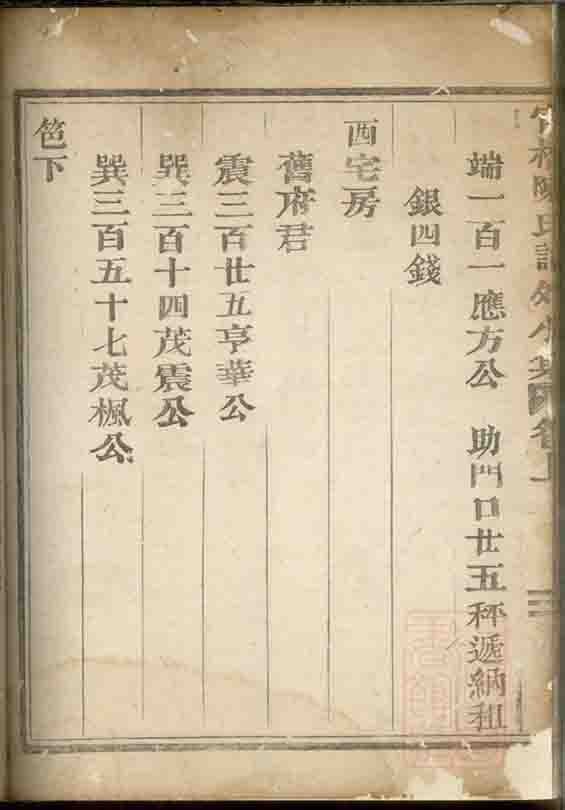 端一百一應方公　助門口廿五秤遞納租
銀四錢
西宅房
舊府君
震三百廿五亨華公
巽三百十四茂震公
巽三百五十七茂楓公
笆下